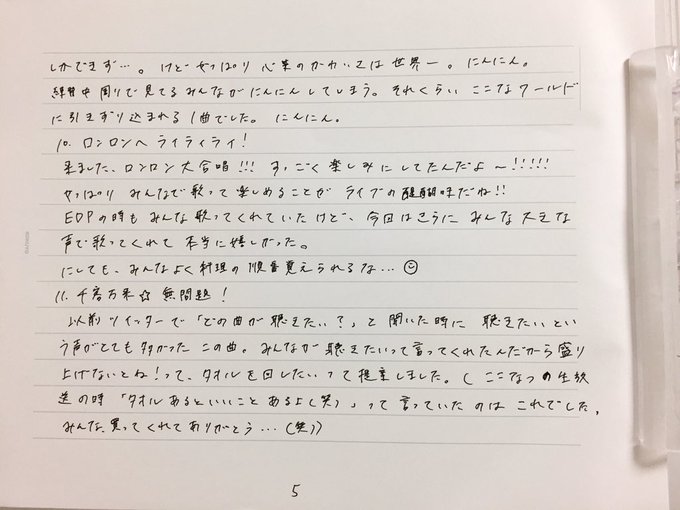 しかできず…。けどやっぱり心菜のかわいさは世界一。にんにん。
練習中周りで見てるみんながにんにんしてしまう。それくらいここなワールド
に引きずり込まれる1曲でした。にんにん。
10. ロンロンへ ライライライ！
来ました、ロンロン大合唱!!! すっごく楽しみにしてたんだよ〜!!!!!
やっぱりみんなで歌って楽しめることがライブの醍醐味だね!!
EDPの時もみんな歌ってくれていたけど、今回はさらにみんな大きな
声で歌ってくれて本当に嬉しかった。
にしても、みんなよく料理の順番覚えられるな…☺
11. 千客万来☆無問題！
以前ツイッターで「どの曲が聴きたい？」と聞いた時に聴きたいとい
う声がとても多かったこの曲。みんなが聴きたいって言ってくれたんだから盛り
上げないとね！って、タオルを回したいって提案しました。（ここなつの生放
送の時「タオルあるといいことあるよ（笑）」って言っていたのはこれでした。
みんな、買ってくれてありがとう…（笑））
5